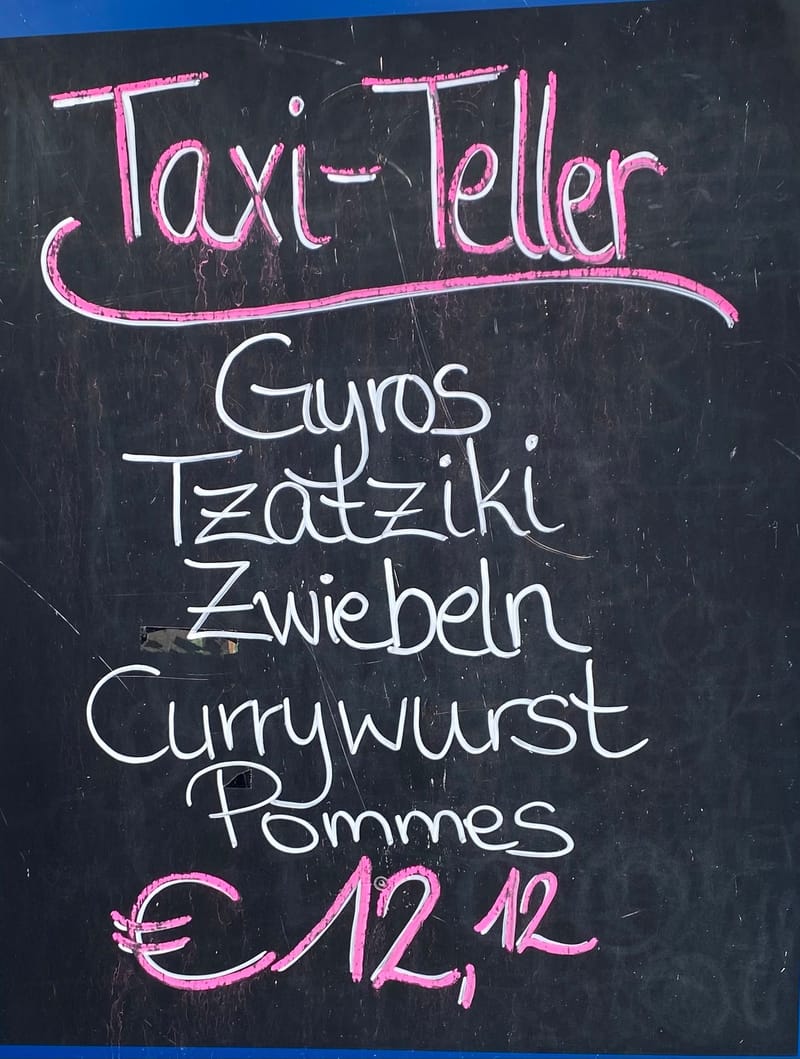 Taxi-Teller
Gyros
Tzatziki
Zwiebeln
Currywurst
Pommes
€12,12